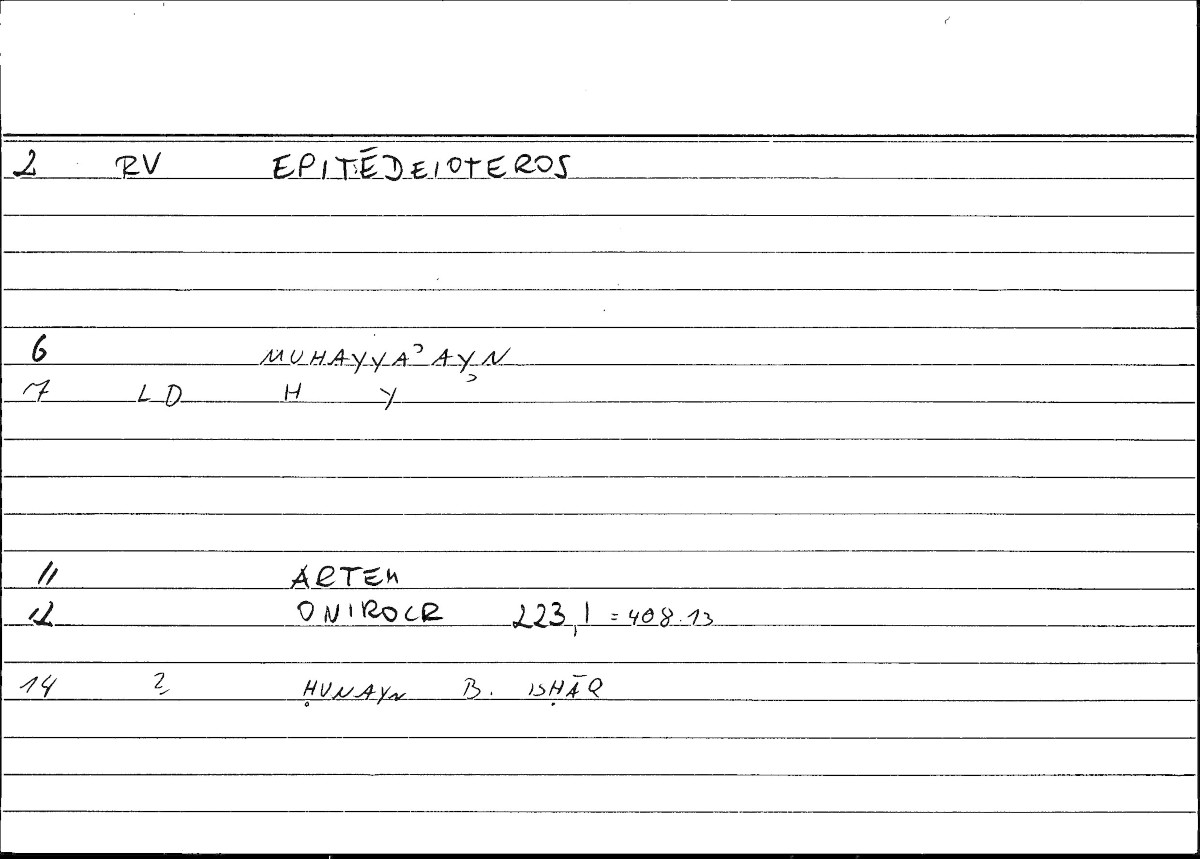 2 RV EPITĒDEIOTEROS
6 MUHAYYAʾAYN
7 LD H Y
11 ARTEM
12 ONIROCR 223,1 = 408.13
14 2 ḤUNAYN B. ISḤĀQ